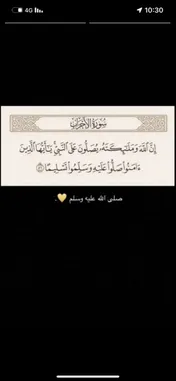 4G
10:30
سُورَةُ الأَحْزَابِ
إِنَّ ٱللَّهَ وَمَلَٰٓئِكَتَهُۥ يُصَلُّونَ عَلَى ٱلنَّبِيِّ يَٰٓأَيُّهَا ٱلَّذِينَ
ءَامَنُوا۟ صَلُّوا۟ عَلَيْهِ وَسَلِّمُوا۟ تَسْلِيمًا ۝٥٦
صلى الله عليه وسلم 💛 .